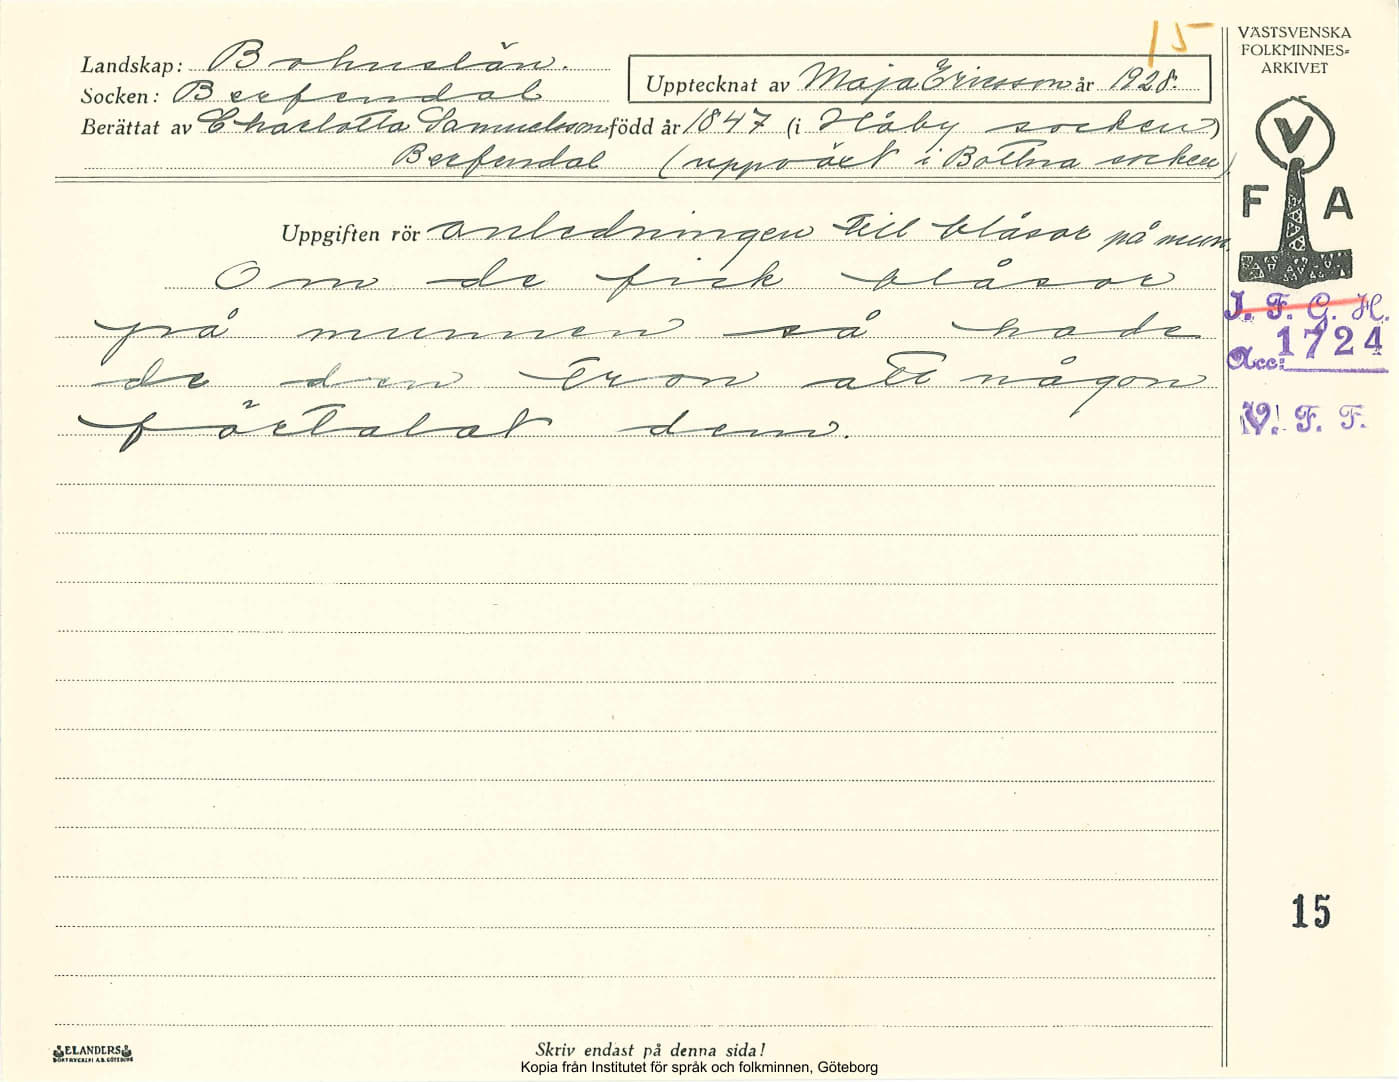 15
VÄSTSVENSKA
FOLKMINNES=
ARKIVET
Landskap: Bohuslän.
Socken: Berfendal
Upptecknat av Maja Ericsson år 1928.
Berättat av Charlotta Samuelsson född år 1847 (i Håby socken)
Berfendal (uppväxt i Bottna socken)
V
F A
Uppgiften rör anledningen till blåsor på mun.
Om de fick blåsor
på munnen så hade
de den tron att någon
förtalat dem.
I. F. G. H.
Acc: 1724
V. F. F.
15
ELANDERS
BOKTRYCKERI A.B. GÖTEBORG
Skriv endast på denna sida!
Kopia från Institutet för språk och folkminnen, Göteborg